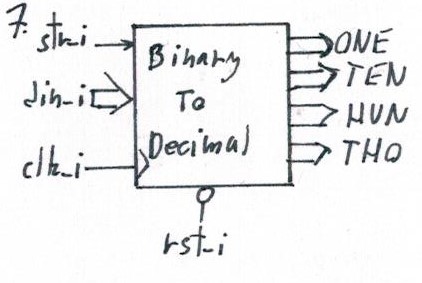 7.
str_i
din_i
clk_i
Binary
To
Decimal
ONE
TEN
HUN
THO
rst_i